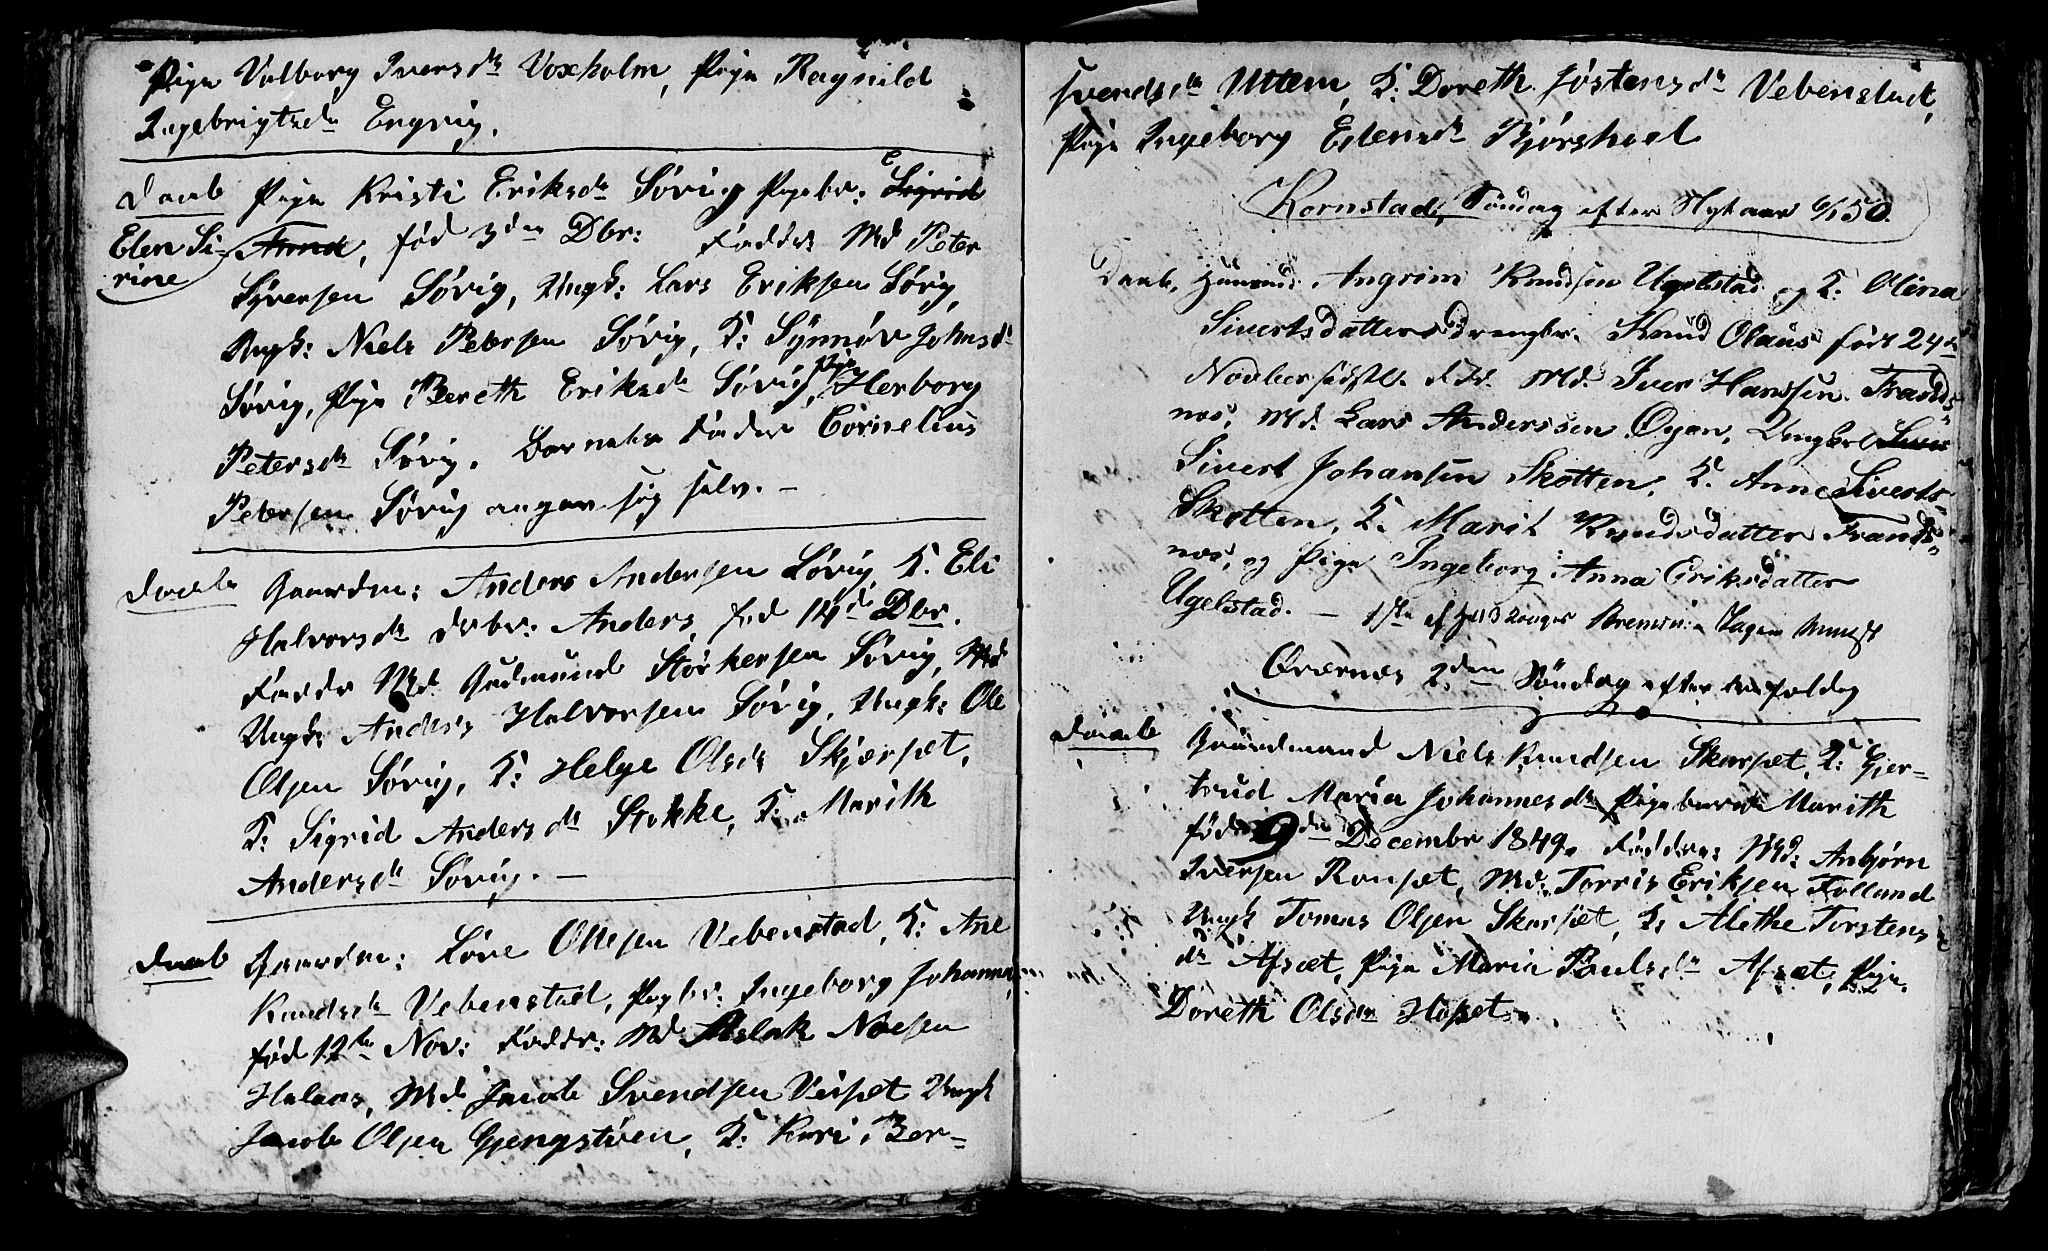 Pige Valborg Iversdtr Voxholm, Pige Ragnild
Ingebrigtsdr Engvig.
Daab Pige Kristi Eriksdr Sørvig Pigebr: Sigrid
Elen Si- Anna, fød 3den Dbr: Faddr: Md Peter
rine Syversen Sørvig, Ungk: Lars Eriksen Sørvig,
Ungk: Niels Petersen Sørvig, K: Synnøv Johnsdr
Sørvig, Pige Bereth Eriksdr Sørvig, Pige Herborg
Petersdr Sørvig. Barnets Fader Cornelius
Petersen Sørvig angav sig selv. —
Daab Gaardm: Anders Andersen Sørvig, K. Eli
Halvorsdr drbr: Anders, fød 14de Dbr.
Faddr Md. Gudmund Størkersen Sørvig, Md
Ungk: Anders Halvorsen Sørvig, Ungk: Ole
Olsen Sørvig, K: Helge Olsdr Skjærset,
K: Sigrid Andersdr Stokke, K: Marith
Andersdr Sørvig. —
Daab Gaardm: Löve Ollesen Vebenstad, K: Ane
Knudsdr Vebenstad, Pigbr: Ingeborg Johanna,
fød 12te Nov: Faddr: Md Aslak Nielsen
Halaas, Md Jacob Svendsen Veiset Ungk
Jacob Olsen Gjengstøen, K: Kari Ber-
svendsdr Uttem, K: Doreth Jøstensdr Vebenstad,
Pige Ingeborg Edensdr Bjørshael
Kornstad, Söndag efter Nytaar 6/1 50.
Daab, Huusmd. Angrim Knudsen Ugelstad og K: Olina
Sivertsdatters drengbr. Knud Olaus født 24de
Novbr sidstl. Fdr. Md. Iver Hanssen Frands-
nes, Md. Lars Anderssen Øyen, Ungkarl Siver
Sivert Johansen Skotten, K. Anne Siverts-
Skotten, K. Marit Knudsdatter Frands-
nes, og Pige Ingeborg Anna Eriksdatter
Ugelstad. —
Qvernes 2den Söndag efter
Daab Gaardmand Niels Knudsen Skarset, K: Gjer-
trud Maria Johannesdr Pigebarn Marith
født 9de Decembr 1849. Faddere: Md: Anbjørn
Iversen Ronset, Md: Torris Eriksen Folland
Ungk Tomas Olsen Skarset, K: Alethe Torstens
dr Afsæt, Pige Maria Paulsdr Afsæt, Pige
Doreth Olsdr Hopset.